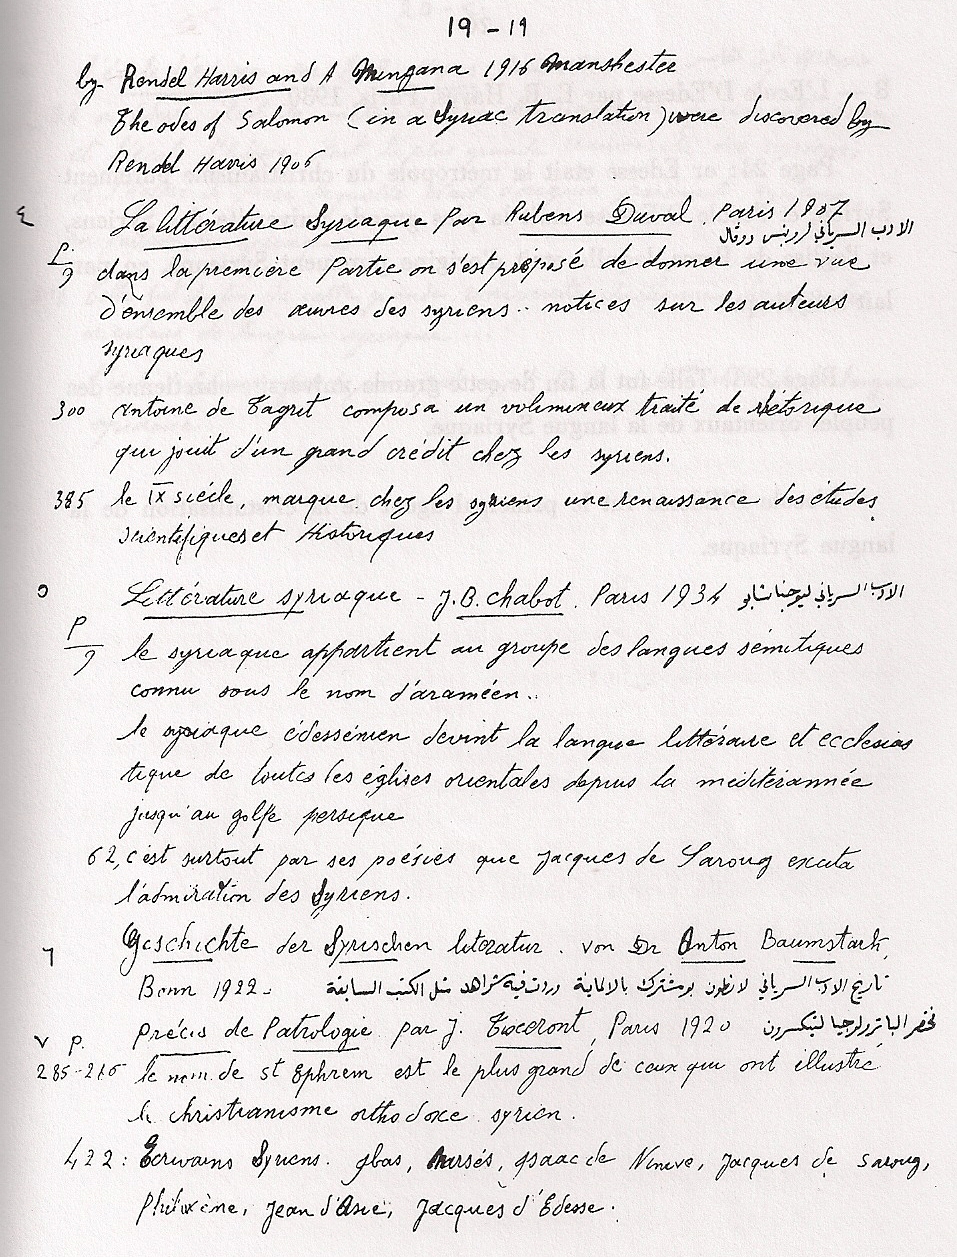 19 - 19
by Rendel Harris and A Mingana 1916 Manshester
The odes of Salomon (in a Syriac translation) were discovered by
Rendel Harris 1906
٤ La littérature Syriaque par Rubens Duval. Paris 1907
الادب السرياني لروبنس دوڤال
P. 9 dans la première Partie on s'est proposé de donner une vue
d'énsemble des œuvres des syriens.. notices sur les auteurs
syriaques
300 Antoine de Tagrit composa un volimineux traité de rhetorique
qui jouit d'un grand crédit chez les syriens.
385 le IX siécle, marque chez les syriens une renaissance des études
scientifiques et Historiques
٥ Littérature syriaque - J.B. Chabot. Paris 1934 الادب السرياني ليوحنا شابو
P 9 le syriaque appartient au groupe des langues sémitiques
connu sous le nom d'araméen..
le syriaque édessénien devint la langue littéraire et ecclesias
tique de toutes les églises orientales depuis la méditérannée
jusqu'au golfe persique
62, c'est surtout par ses poésies que Jacques de Saroug excita
l'admiration des Syriens.
٦ Geschichte der Syrischen literatur. von Dr Anton Baumstark,
Bonn 1922 - تاريخ الادب السرياني لانطون بومشترك بالالمانية وردت فيه شواهد مثل الكتب السابقة
٧ P. précis de Patrologie par J. Tixeront, Paris 1920 مختصر الباترولوجيا لتيكسرون
285-216 le nom de st Ephrem est le plus grand de ceux qui ont illustré
le christianisme orthodoxe syrien.
422: Ecrivains Syriens. Ibas, Narsés, Isaac de Ninive, Jacques de Saroug,
Philoxène, Jean d'Asie, Jacques d'Edesse.